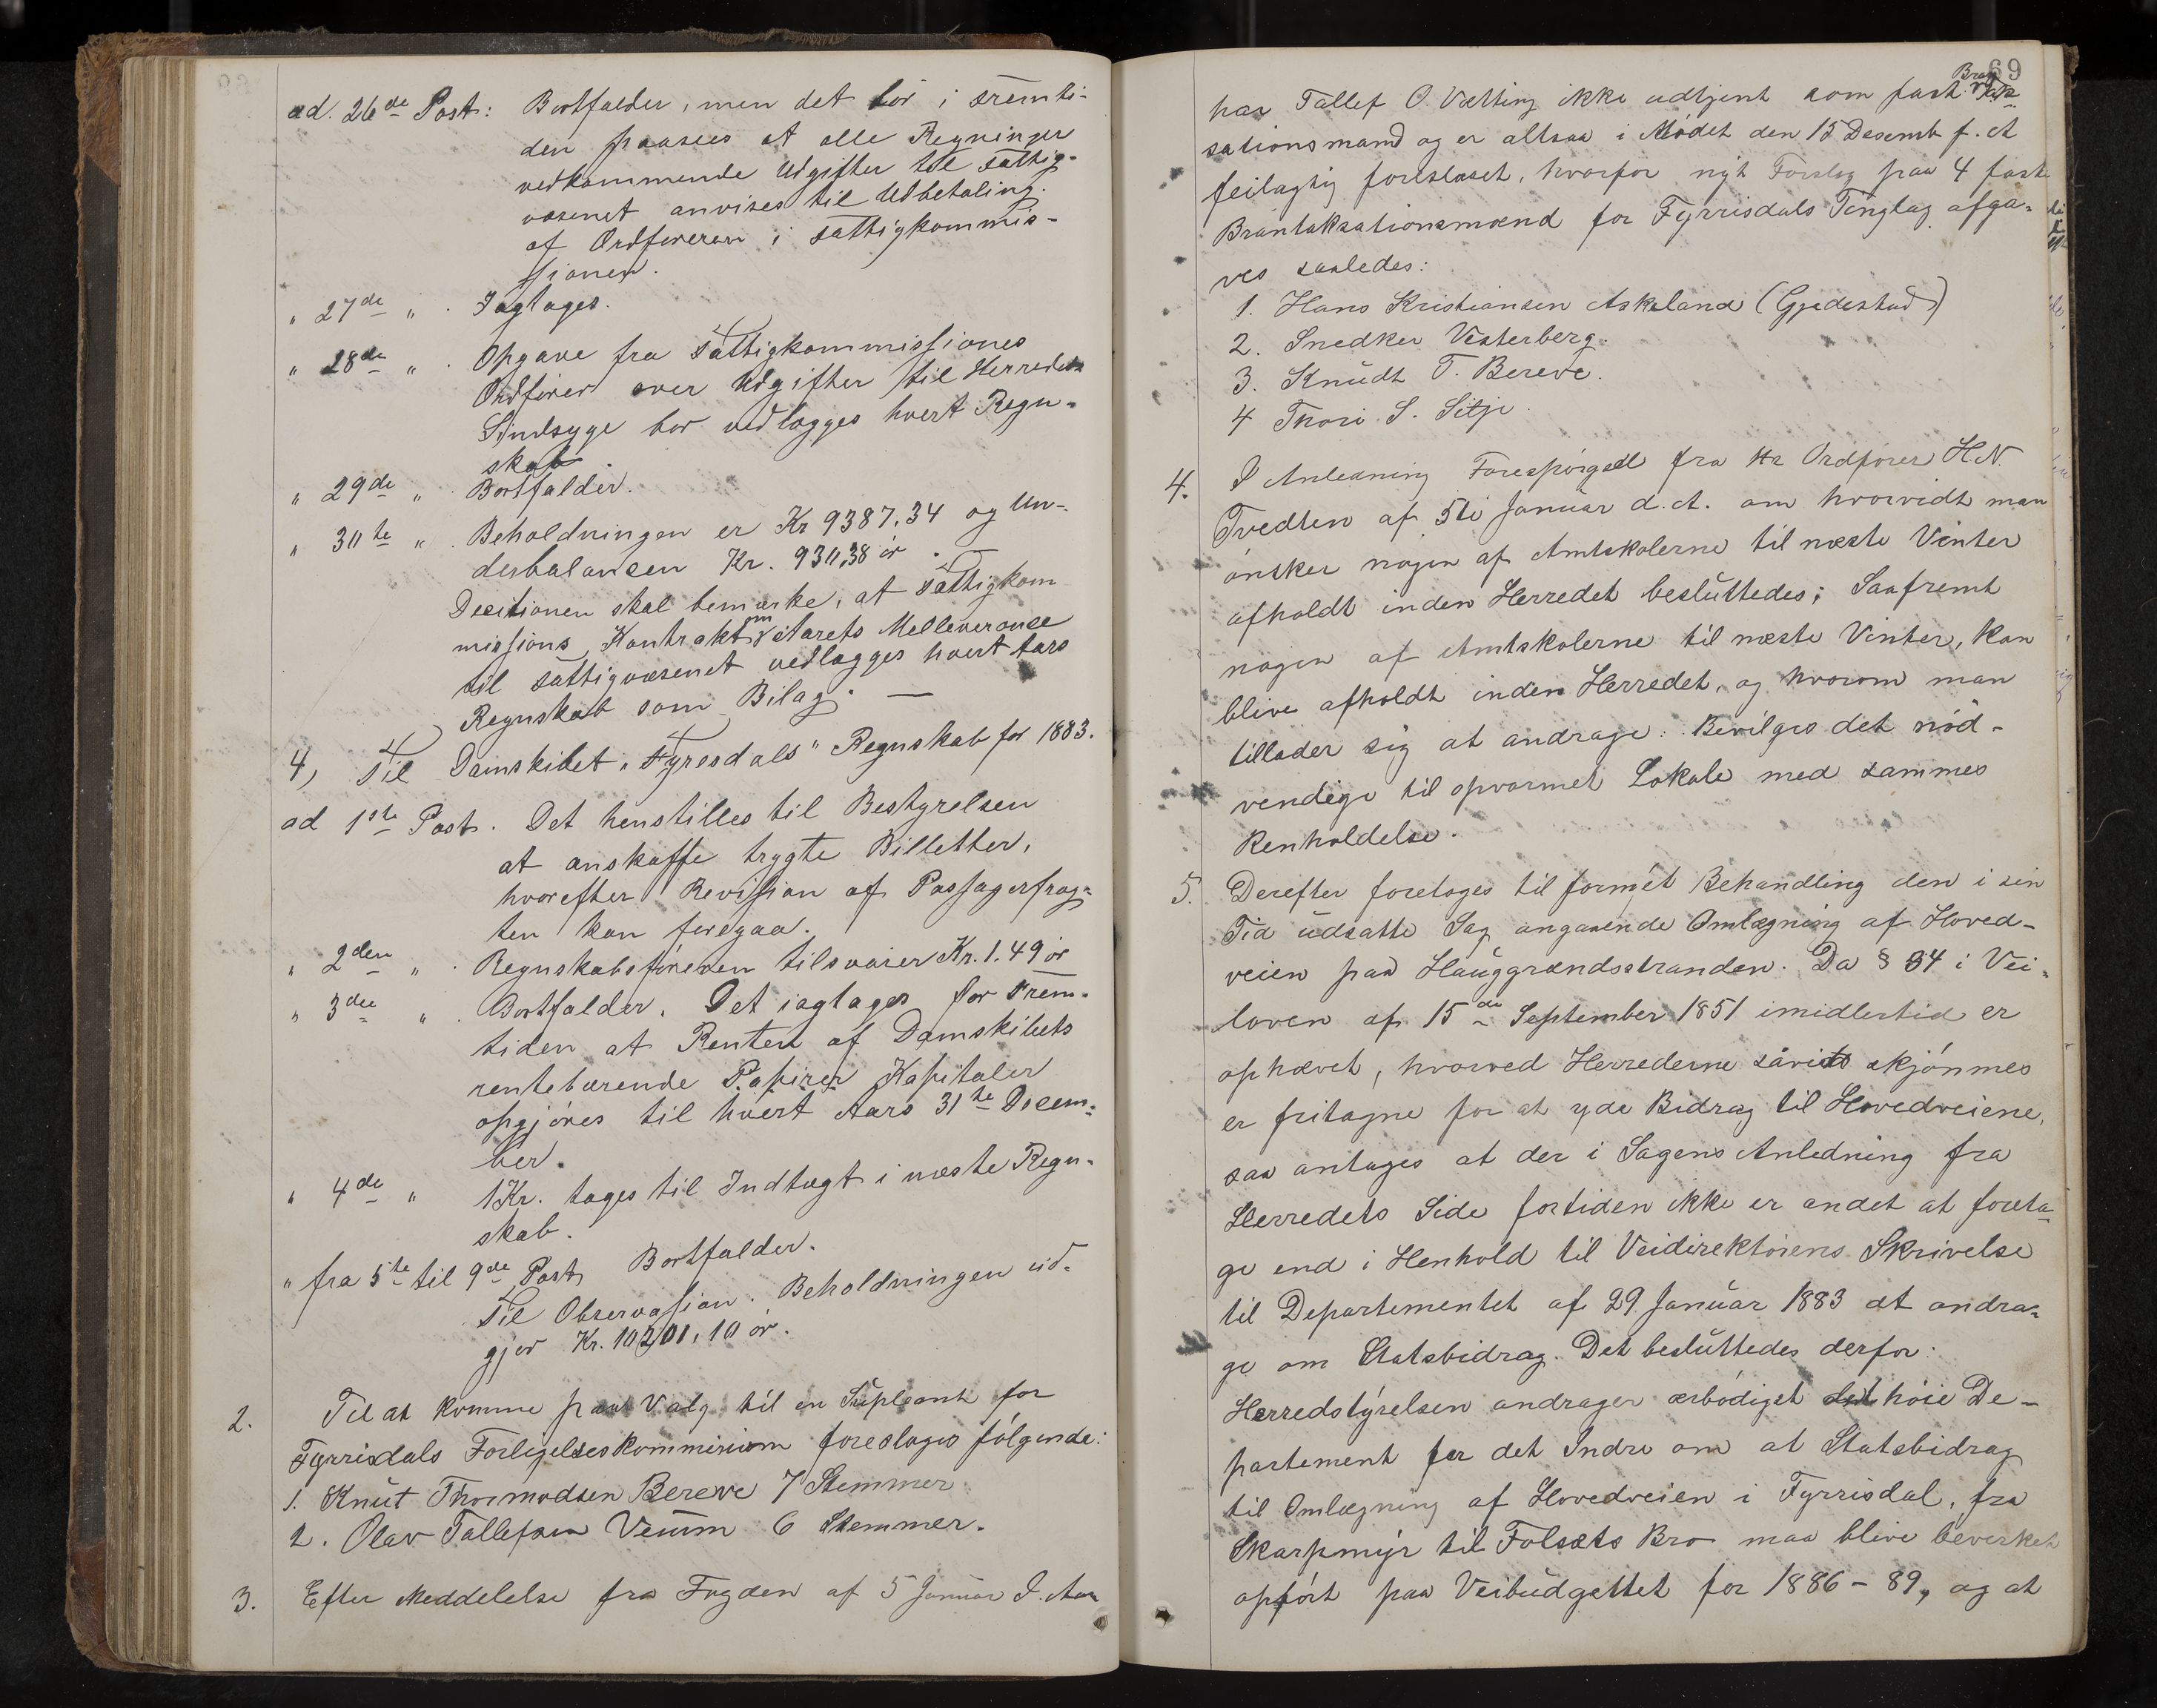 ad. 26de Post: Bortfalder, men det bør i Fremti-
den paasees at alle Regninger
vedkommende Udgifter til Fattig-
væsenet anvises til Udbetaling
af Ordføreren i Fattigkommis-
sionen.
" 27de " . Iagtages.
" 28de " . Opgave fra Fattigkommissiones
Ordfører over Udgifter til Herredets
Sindsyge bør vedlægges hvert Regn-
skab.
" 29de " . Bortfalder.
" 30te " . Beholdningen er Kr 9387,34 og Un-
derbalansen Kr. 930,38 ør.
Desitionen skal bemærke, at Fattigkom
missions Kontrakt om Aarets Melleverance
til Fattigvæsenet vedlægges hvert Aars
Regnskab som Bilag. —
4, Til Damskibet "Fyresdals" Regnskab for 1883.
ad 1ste Post. Det henstilles til Bestyrelsen
at anskaffe trygte Billetter,
hvorefter Revision af Passagerfrag-
ten kan foregaa.
" 2den " . Regnskabsføreren tilsvarer Kr. 1.49 ør
" 3die " . Bortfalder. Det iagtages for Frem-
tiden at Renten af Damskibets
rentebærende Papirer Kapitaler
opgjøres til hvert Aars 31te Decem-
ber.
" 4de " 1 Kr. tages til Indtægt i næste Regn-
skab.
" fra 5te til 9de Post Bortfalder.
Til Observasion. Beholdningen ud-
gjør Kr. 10201,10 ør.
2. Til at komme paa Valg til en Supleant for
Fyrrisdals Forligelseskommission foreslages følgende:
1. Knut Thormodsen Bereve 7 Stemmer
2. Olav Tallefsen Veum 6 Stemmer.
3. Efter Meddelelse fra Fogden af 5 Januar d. Aar
69
har Tallef O. Vætting ikke udtjent som fast Brantak-
sationsmand og er altsaa i Mødet den 15 Desemb f. A
feilagtig foreslaaet, hvorfor nyt Forslag paa 4 faste
Brantaksationsmænd for Fyrrisdals Tinglag afga-
ves saaledes:
1. Hans Kristiansen Askeland (Gjedestad)
2. Snedker Vesterberg.
3. Knudt T. Bereve.
4 Thore S. Sitje.
4. I Anledning Forespørgsel fra Hr Ordfører H.N.
Tvedten af 5te Januar d.A. om hvorvidt man
ønsker nogen af Amtskolerne til næste Vinter
afholdt inden Herredet besluttedes; Saafremt
nogen af Amtskolerne til næste Vinter, kan
blive afholdt inden Herredet, og hvorom man
tillader sig at andrage: Bevilges det nød-
vendige til opvarmet Lokale med sammes
Renholdelse.
5. Derefter foretages til fornyet Behandling den i sin
Tid udsatte Sag angaaende Omlægning af Hoved-
veien paa Hauggrændsstranden. Da § 34 i Vei-
loven af 15de September 1851 imidlertid er
ophævet, hvorved Herrederne såvidt skjønnes
er fritagne for at yde Bidrag til Hovedveiene,
saa antages at der i Sagens Anledning fra
Herredets Side fortiden ikke er andet at foreta-
ge end i Henhold til Veidirektørens Skrivelse
til Departementet af 29. Januar 1883 at andra-
ge om Statsbidrag. Det besluttedes derfor:
Herredstyrelsen andrager ærbødigst det høie De-
partement for det Indre om at Statsbidrag
til Omlægning af Hovedveien i Fyrrisdal, fra
Skarpmyr til Folsæts Bro maa blive bevirket
opført paa Veibudgettet for 1886-89, og at